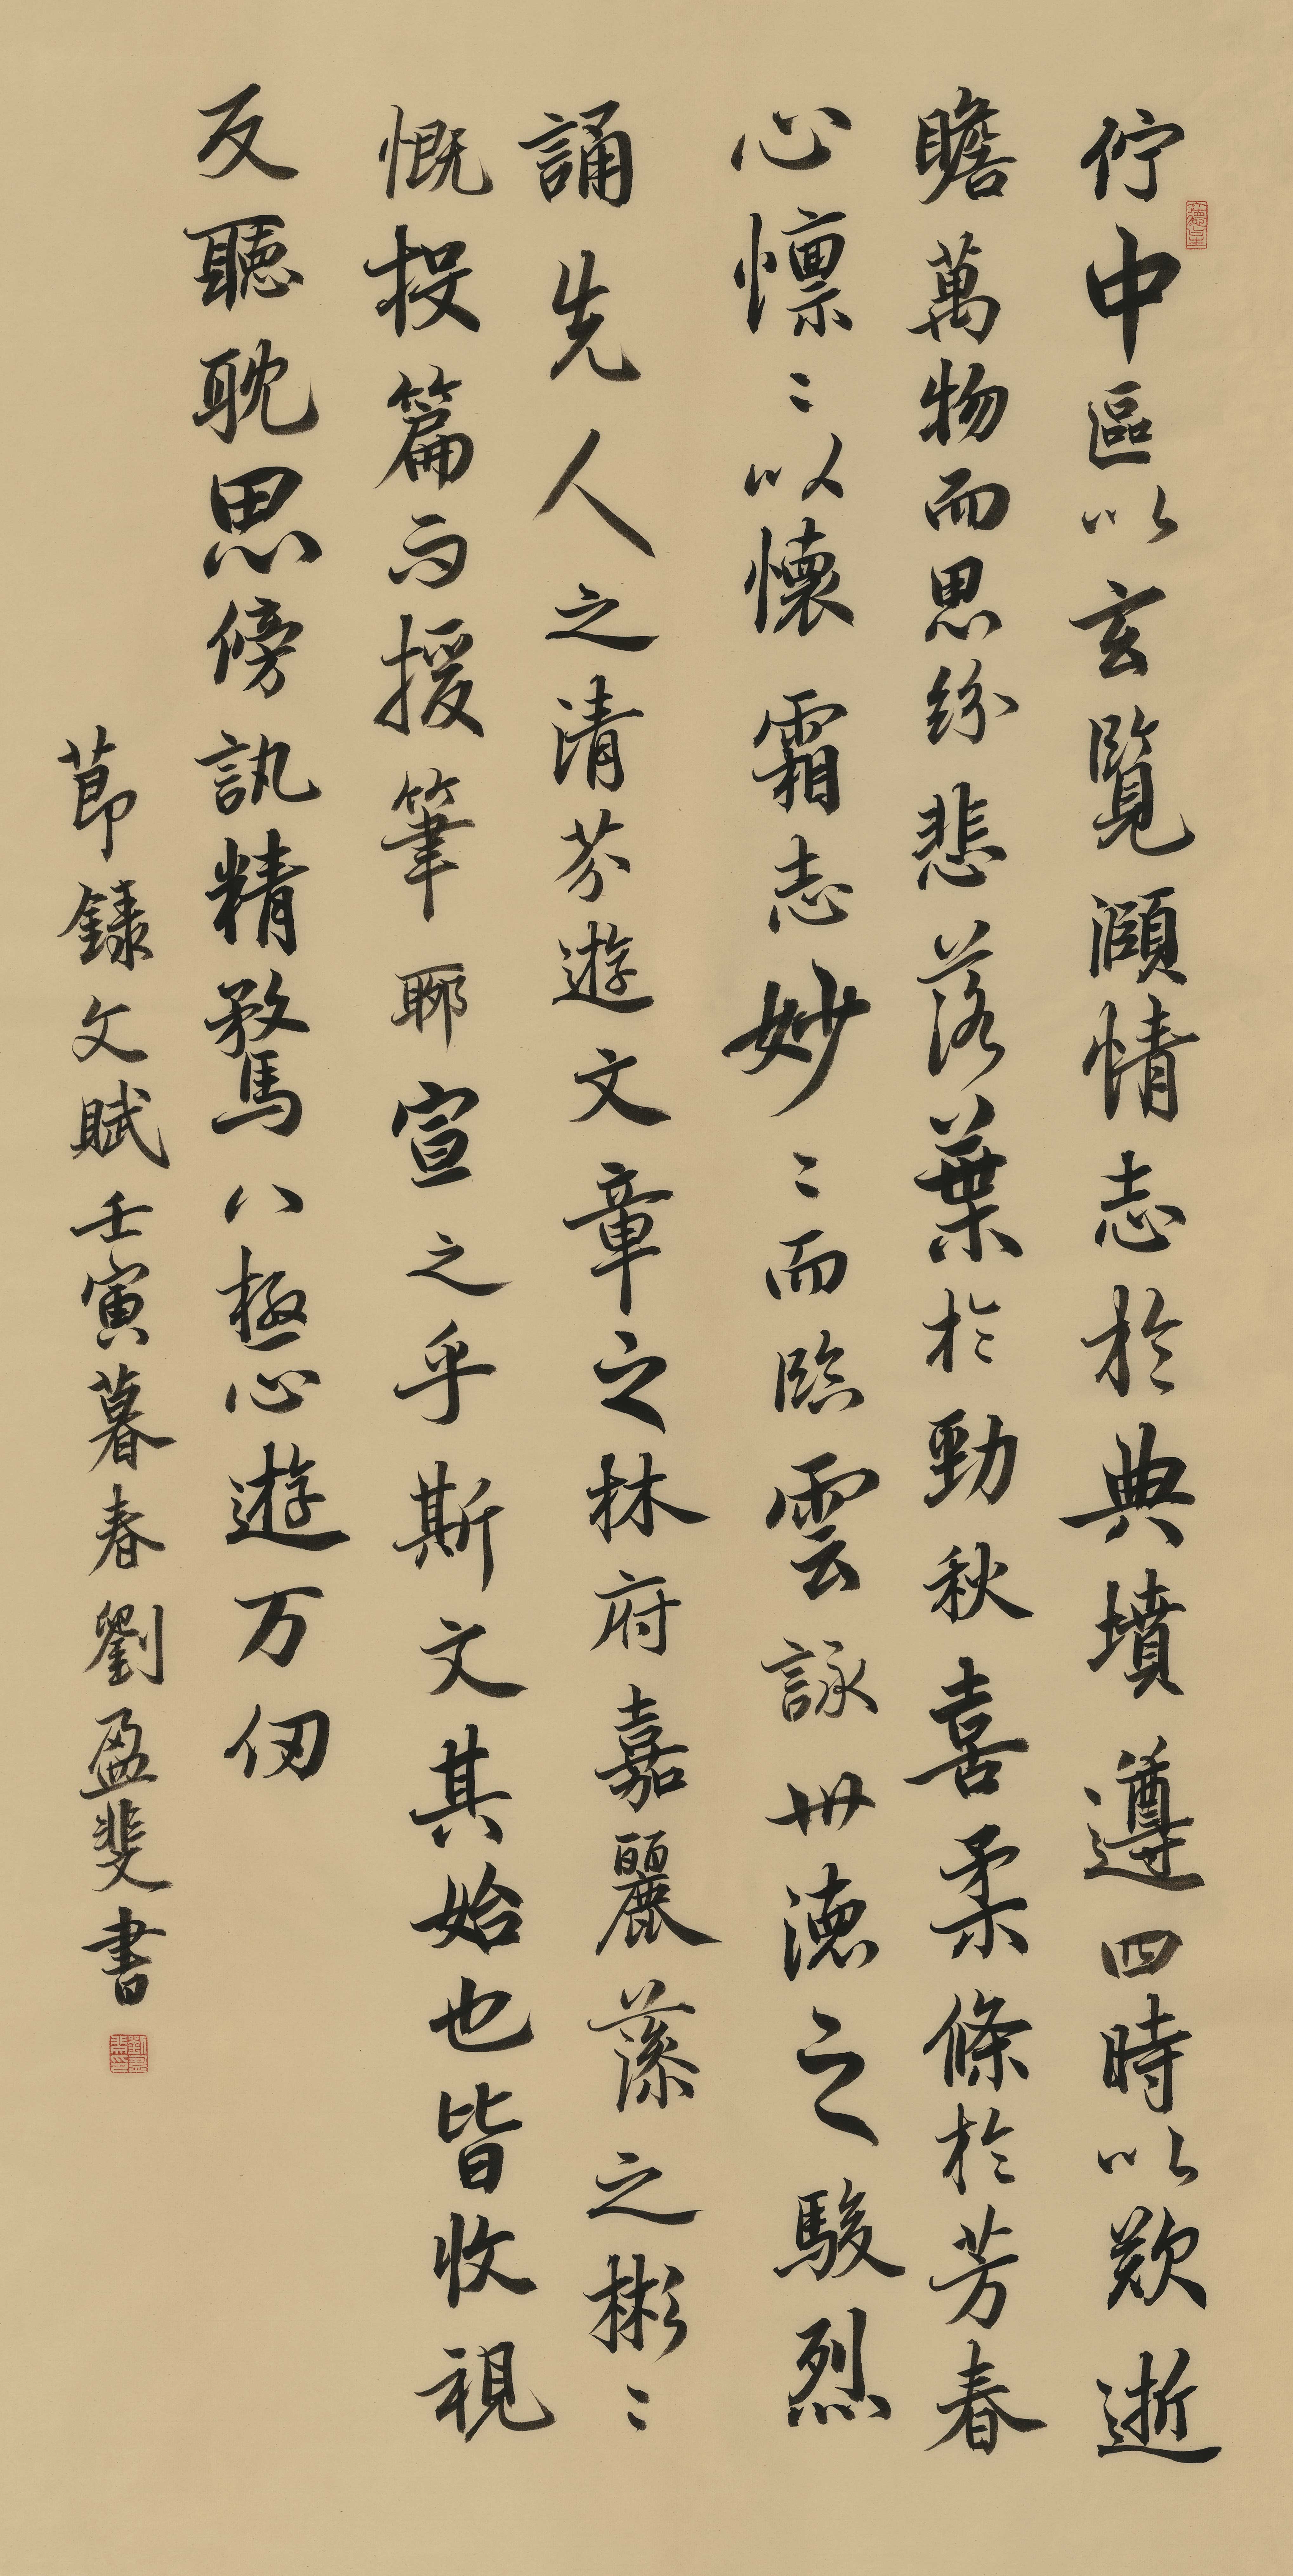 佇中區以玄覽頤情志於典墳遵四時以歎逝
瞻萬物而思紛悲落葉於勁秋喜柔條於芳春
心懍〻以懷霜志妙〻而臨雲詠世德之駿烈
誦先人之清芬遊文章之林府嘉麗藻之彬〻
慨投篇而援筆聊宣之乎斯文其始也皆收視
反聽耽思傍訊精騖八極心遊万仞
節錄文賦壬寅暮春劉盈斐書